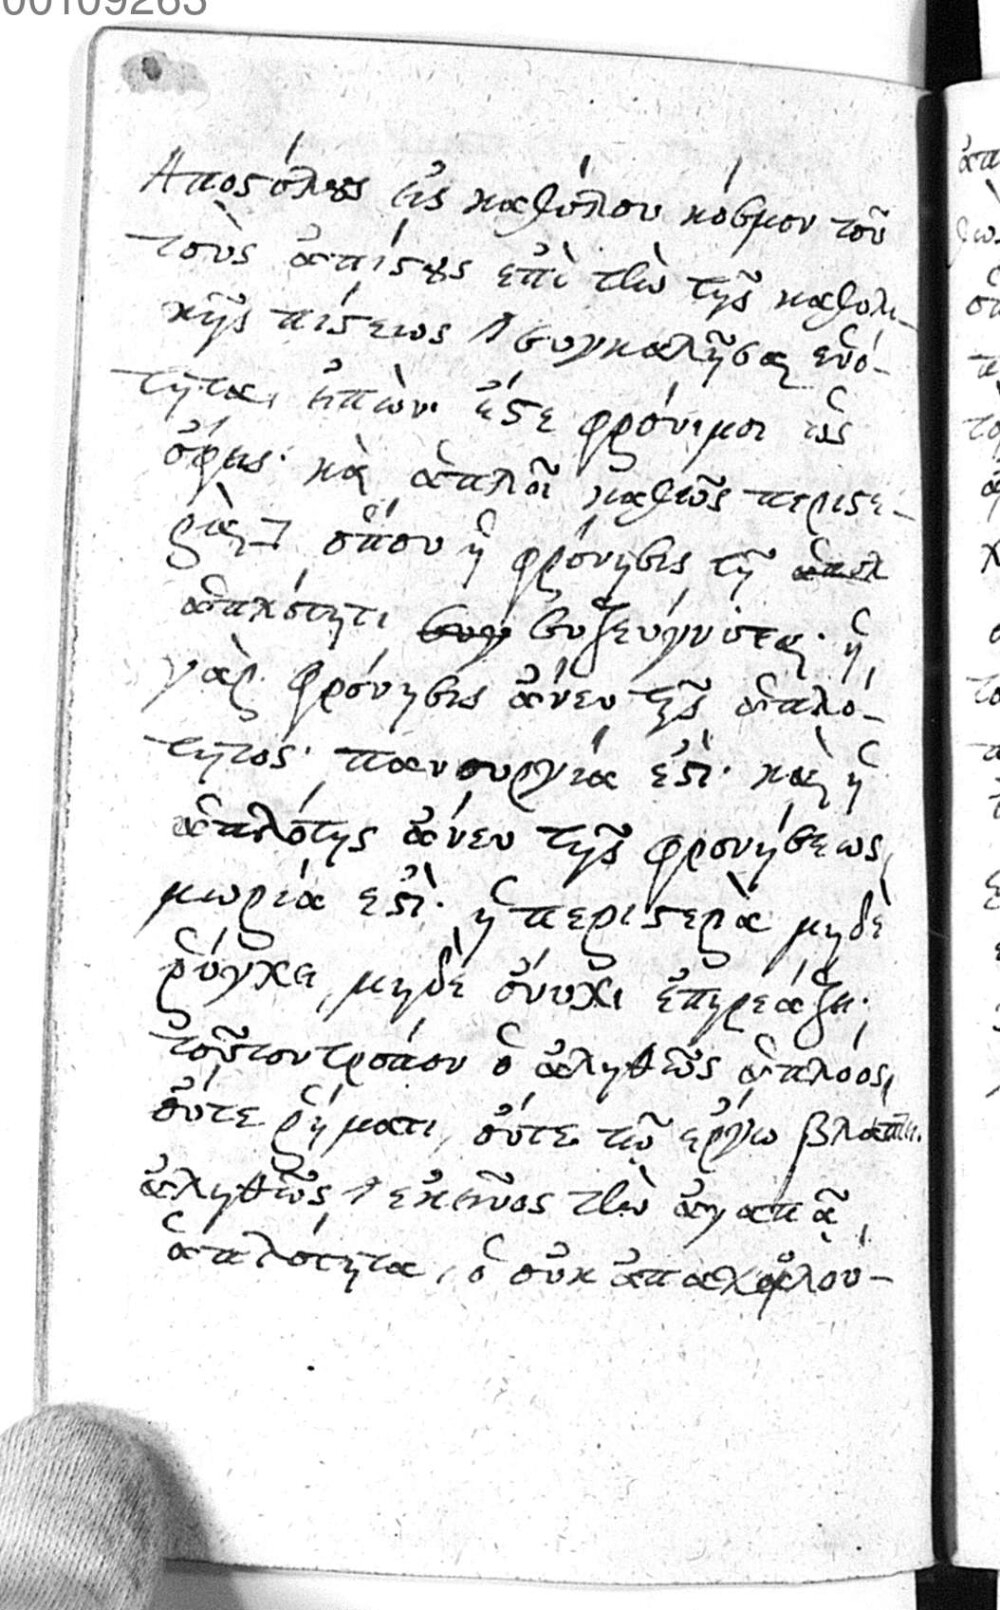 00109263
Αποστόλους εἰς καθόλου κόσμον τοῦ
τοὺς ἀπίστους ἐπὶ τὴν τῆς καθολι-
κῆς πίστεως συγκαλῆσαι ἑνό-
τητα, εἰπὼν· ἔστε φρόνιμοι ὡς
ὄφεις· καὶ ἁπλοῖ καθὼς περιστε-
ραὶ ὅπου ἡ φρόνησις τῇ ἁπλ
ἁπλότητι συγ συζεύγνυται· ἡ
γὰρ φρόνησις ἄνευ τῆς ἁπλό-
τητος· πανουργία ἐστὶ· καὶ ἡ
ἁπλότης ἄνευ τῆς φρονήσεως,
μωρία ἐστὶ· ἡ περιστερὰ μηδὲ
ῥύγχει, μηδὲ ὄνυχι ἐπηρεάζει·
τοῦτον τρόπον ὁ ἀληθῶς ἁπλόος,
οὔτε ῥήματι, οὔτε τῷ ἔργῳ βλάπτει.
ἀληθῶς ἐκεῖνος τὴν ἀγαπᾷ
ἁπλότητα, ὁ οὐκ